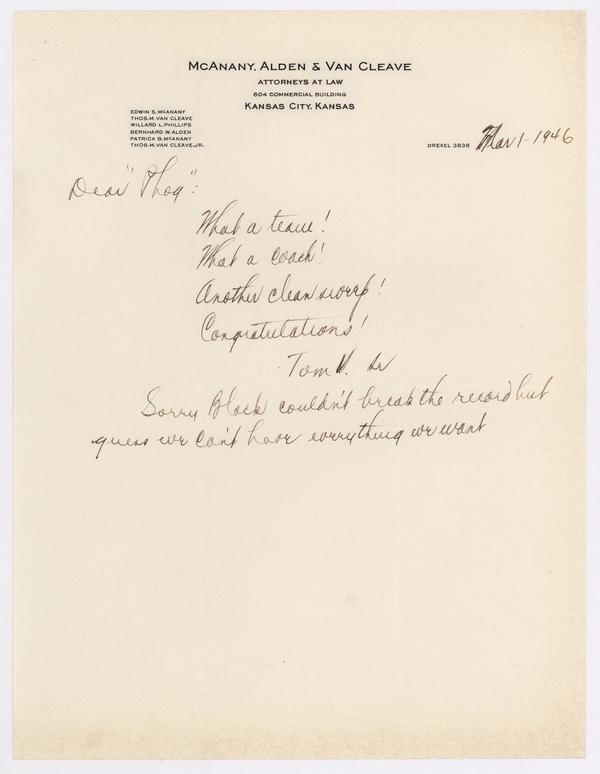 McANANY, ALDEN & VAN CLEAVE
ATTORNEYS AT LAW
604 COMMERCIAL BUILDING
KANSAS CITY, KANSAS
EDWIN S. McANANY
THOS. M. VAN CLEAVE
WILLARD L. PHILLIPS
BERNHARD W. ALDEN
PATRICK B. McANANY
THOS. M. VAN CLEAVE, JR.
DREXEL 3838
Mar 1 - 1946
Dear "Phog":
What a team!
What a coach!
Another clean sweep!
Congratulations!
Tom V. Sr
Sorry Black couldn't break the record but
guess we can't have everything we want